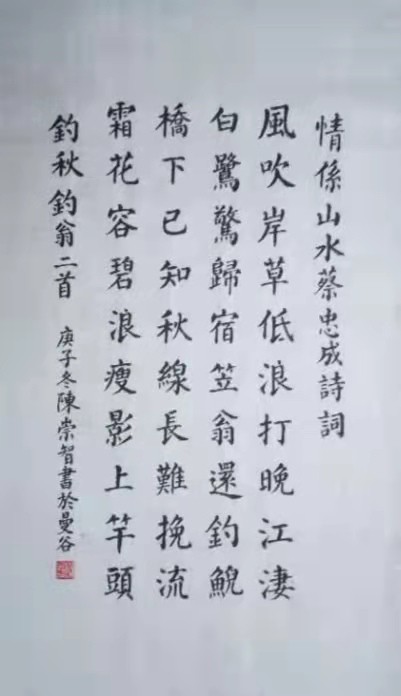 情係山水蔡忠成詩詞
風吹岸草低浪打晚江淒
白鷺驚歸宿笠翁還釣鯢
橋下已知秋線長難挽流
霜花容碧浪瘦影上竿頭
釣秋釣翁二首
庚子冬陳崇智書於曼谷